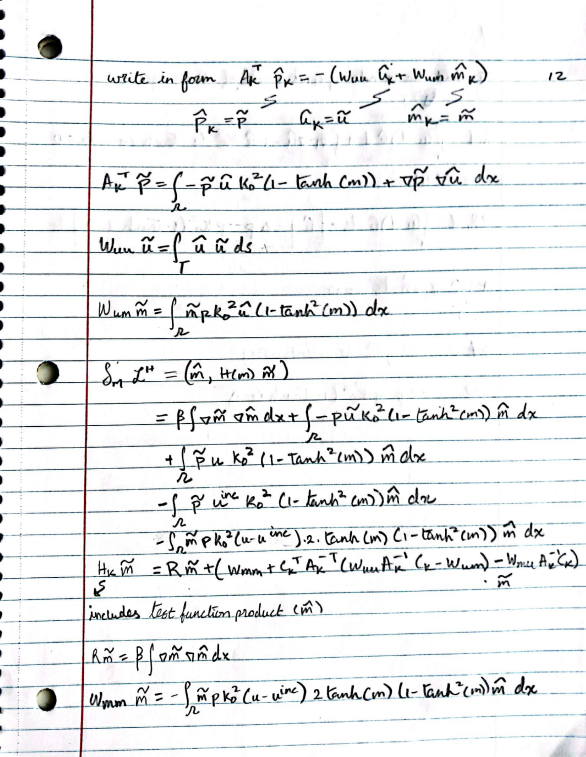 write in form A_K^T p̂_K = -(W_uu û_K + W_um m̂_K) 12
p̂_K = p̃ û_K = ũ m̂_K = m̃
A_K^T p̃ = ∫_Ω - p̃ û k_0^2 (1 - tanh(m)) + ∇p̃ ∇û dx
W_uu ũ = ∫_T û ũ ds
W_um m̃ = ∫_Ω m̃ p k_0^2 û (1 - tanh^2(m)) dx
δ_m L^H = (m̂, H(m) m̃)
= β ∫ ∇m̃ ∇m̂ dx + ∫_Ω - p ũ k_0^2 (1 - tanh^2(m)) m̂ dx
+ ∫_Ω p̃ u k_0^2 (1 - tanh^2(m)) m̂ dx
- ∫_Ω p̃ u^inc k_0^2 (1 - tanh^2(m)) m̂ dx
- ∫_Ω m̃ p k_0^2 (u - u^inc).2.tanh(m) (1 - tanh^2(m)) m̂ dx
H_K m̃ = R m̃ + (W_mm + C_K^T A_K^{-T} (W_uu A_K^{-1} C_K - W_um) - W_mu A_K^{-1} C_K) m̃
includes test function product (m̂)
R m̃ = β ∫ ∇m̃ ∇m̂ dx
W_mm m̃ = - ∫_Ω m̃ p k_0^2 (u - u^inc) 2 tanh(m) (1 - tanh^2(m)) m̂ dx